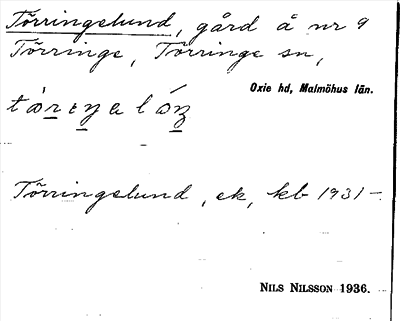 Törringelund, gård å nr 9
Törringe, Törringe sn,
Oxie hd, Malmöhus län.
Törringelund, ek, kb 1931–.
NILS NILSSON 1936.